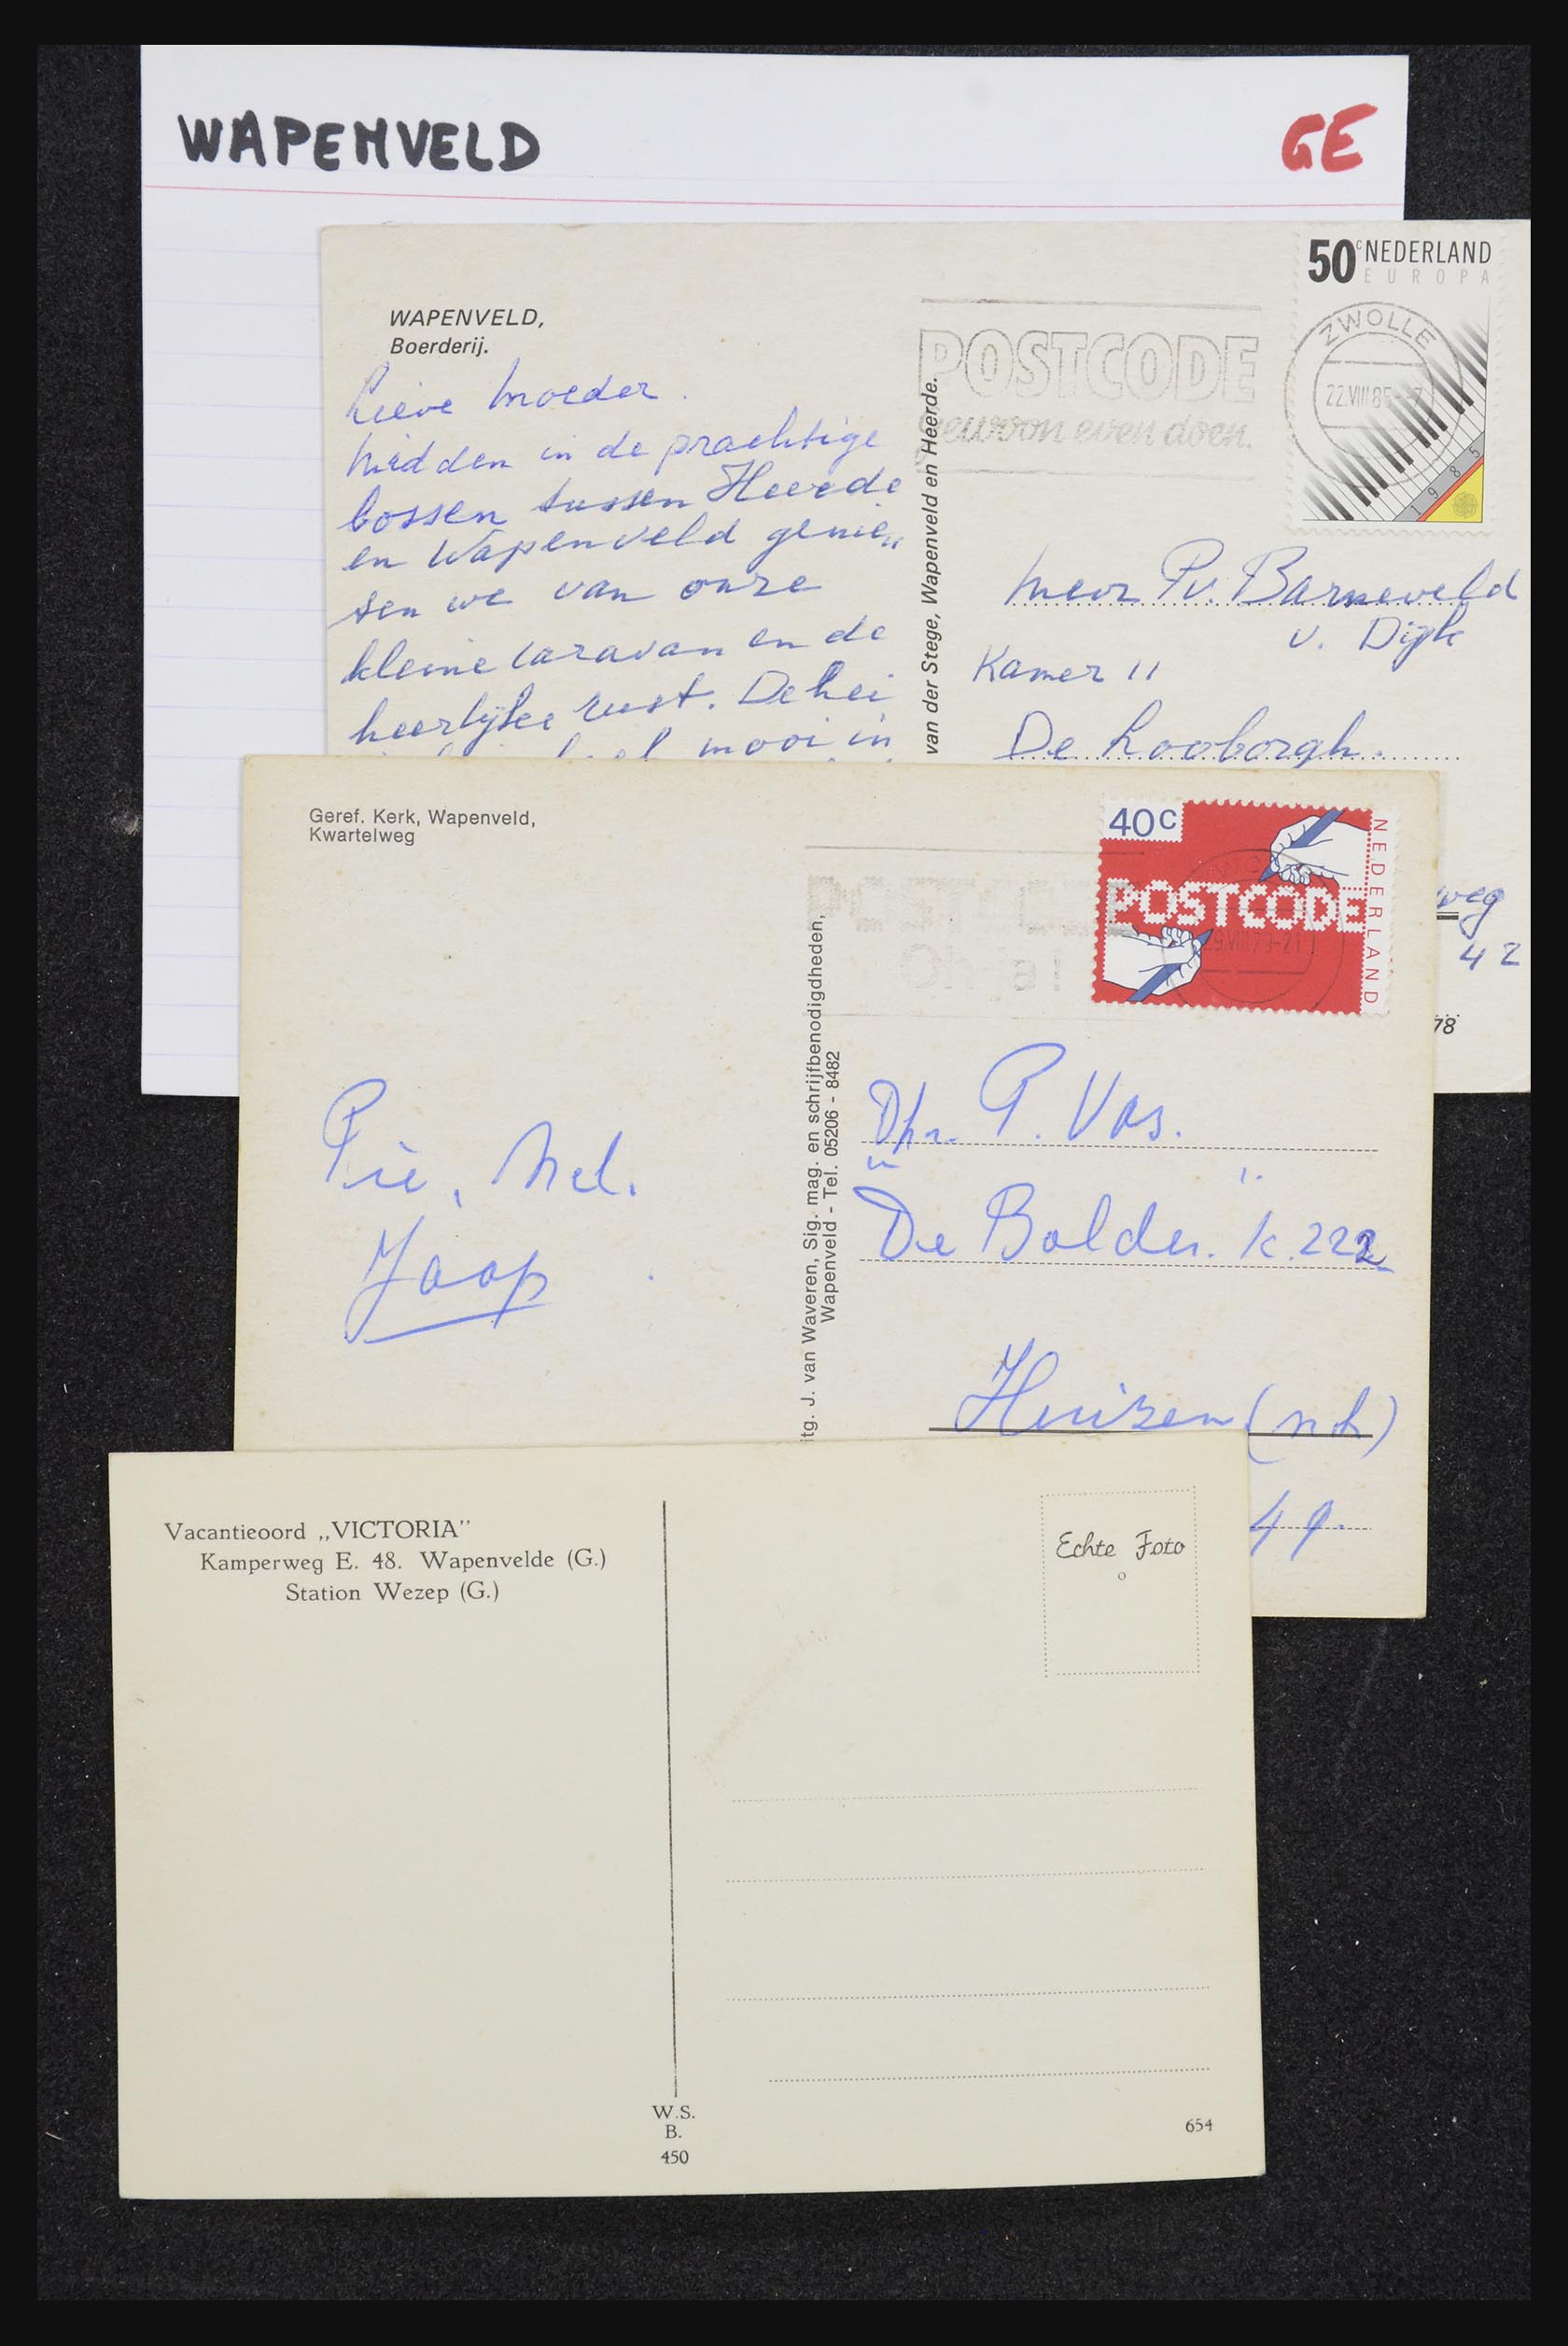 WAPENVELD
GE
50c NEDERLAND
EUROPA
ZWOLLE
22.VIII.85
1985
POSTCODE
gewoon even doen.
WAPENVELD,
Boerderij.
Lieve Moeder.
Midden in de prachtige
bossen tussen Heerde
en Wapenveld genie„
ten we van onze
kleine caravan en de
heerlijke rust. De hei
heel mooi in
van der Stege, Wapenveld en Heerde.
Mevr P.v. Barneveld
v. Dijk
Kamer 11
De Looborgh.
weg
42
78
Geref. Kerk, Wapenveld,
Kwartelweg
40c
NEDERLAND
POSTCODE
Pie, Nel.
Jaap
itg. J. van Waveren, Sig. mag. en schrijfbenodigdheden,
Wapenveld - Tel. 05206 - 8482
Dhr. P. Vos.
"De Bolder." k. 222
Huizen (nh)
49.
Vacantieoord „VICTORIA”
Kamperweg E. 48. Wapenvelde (G.)
Station Wezep (G.)
Echte Foto
W.S.
B.
450
654